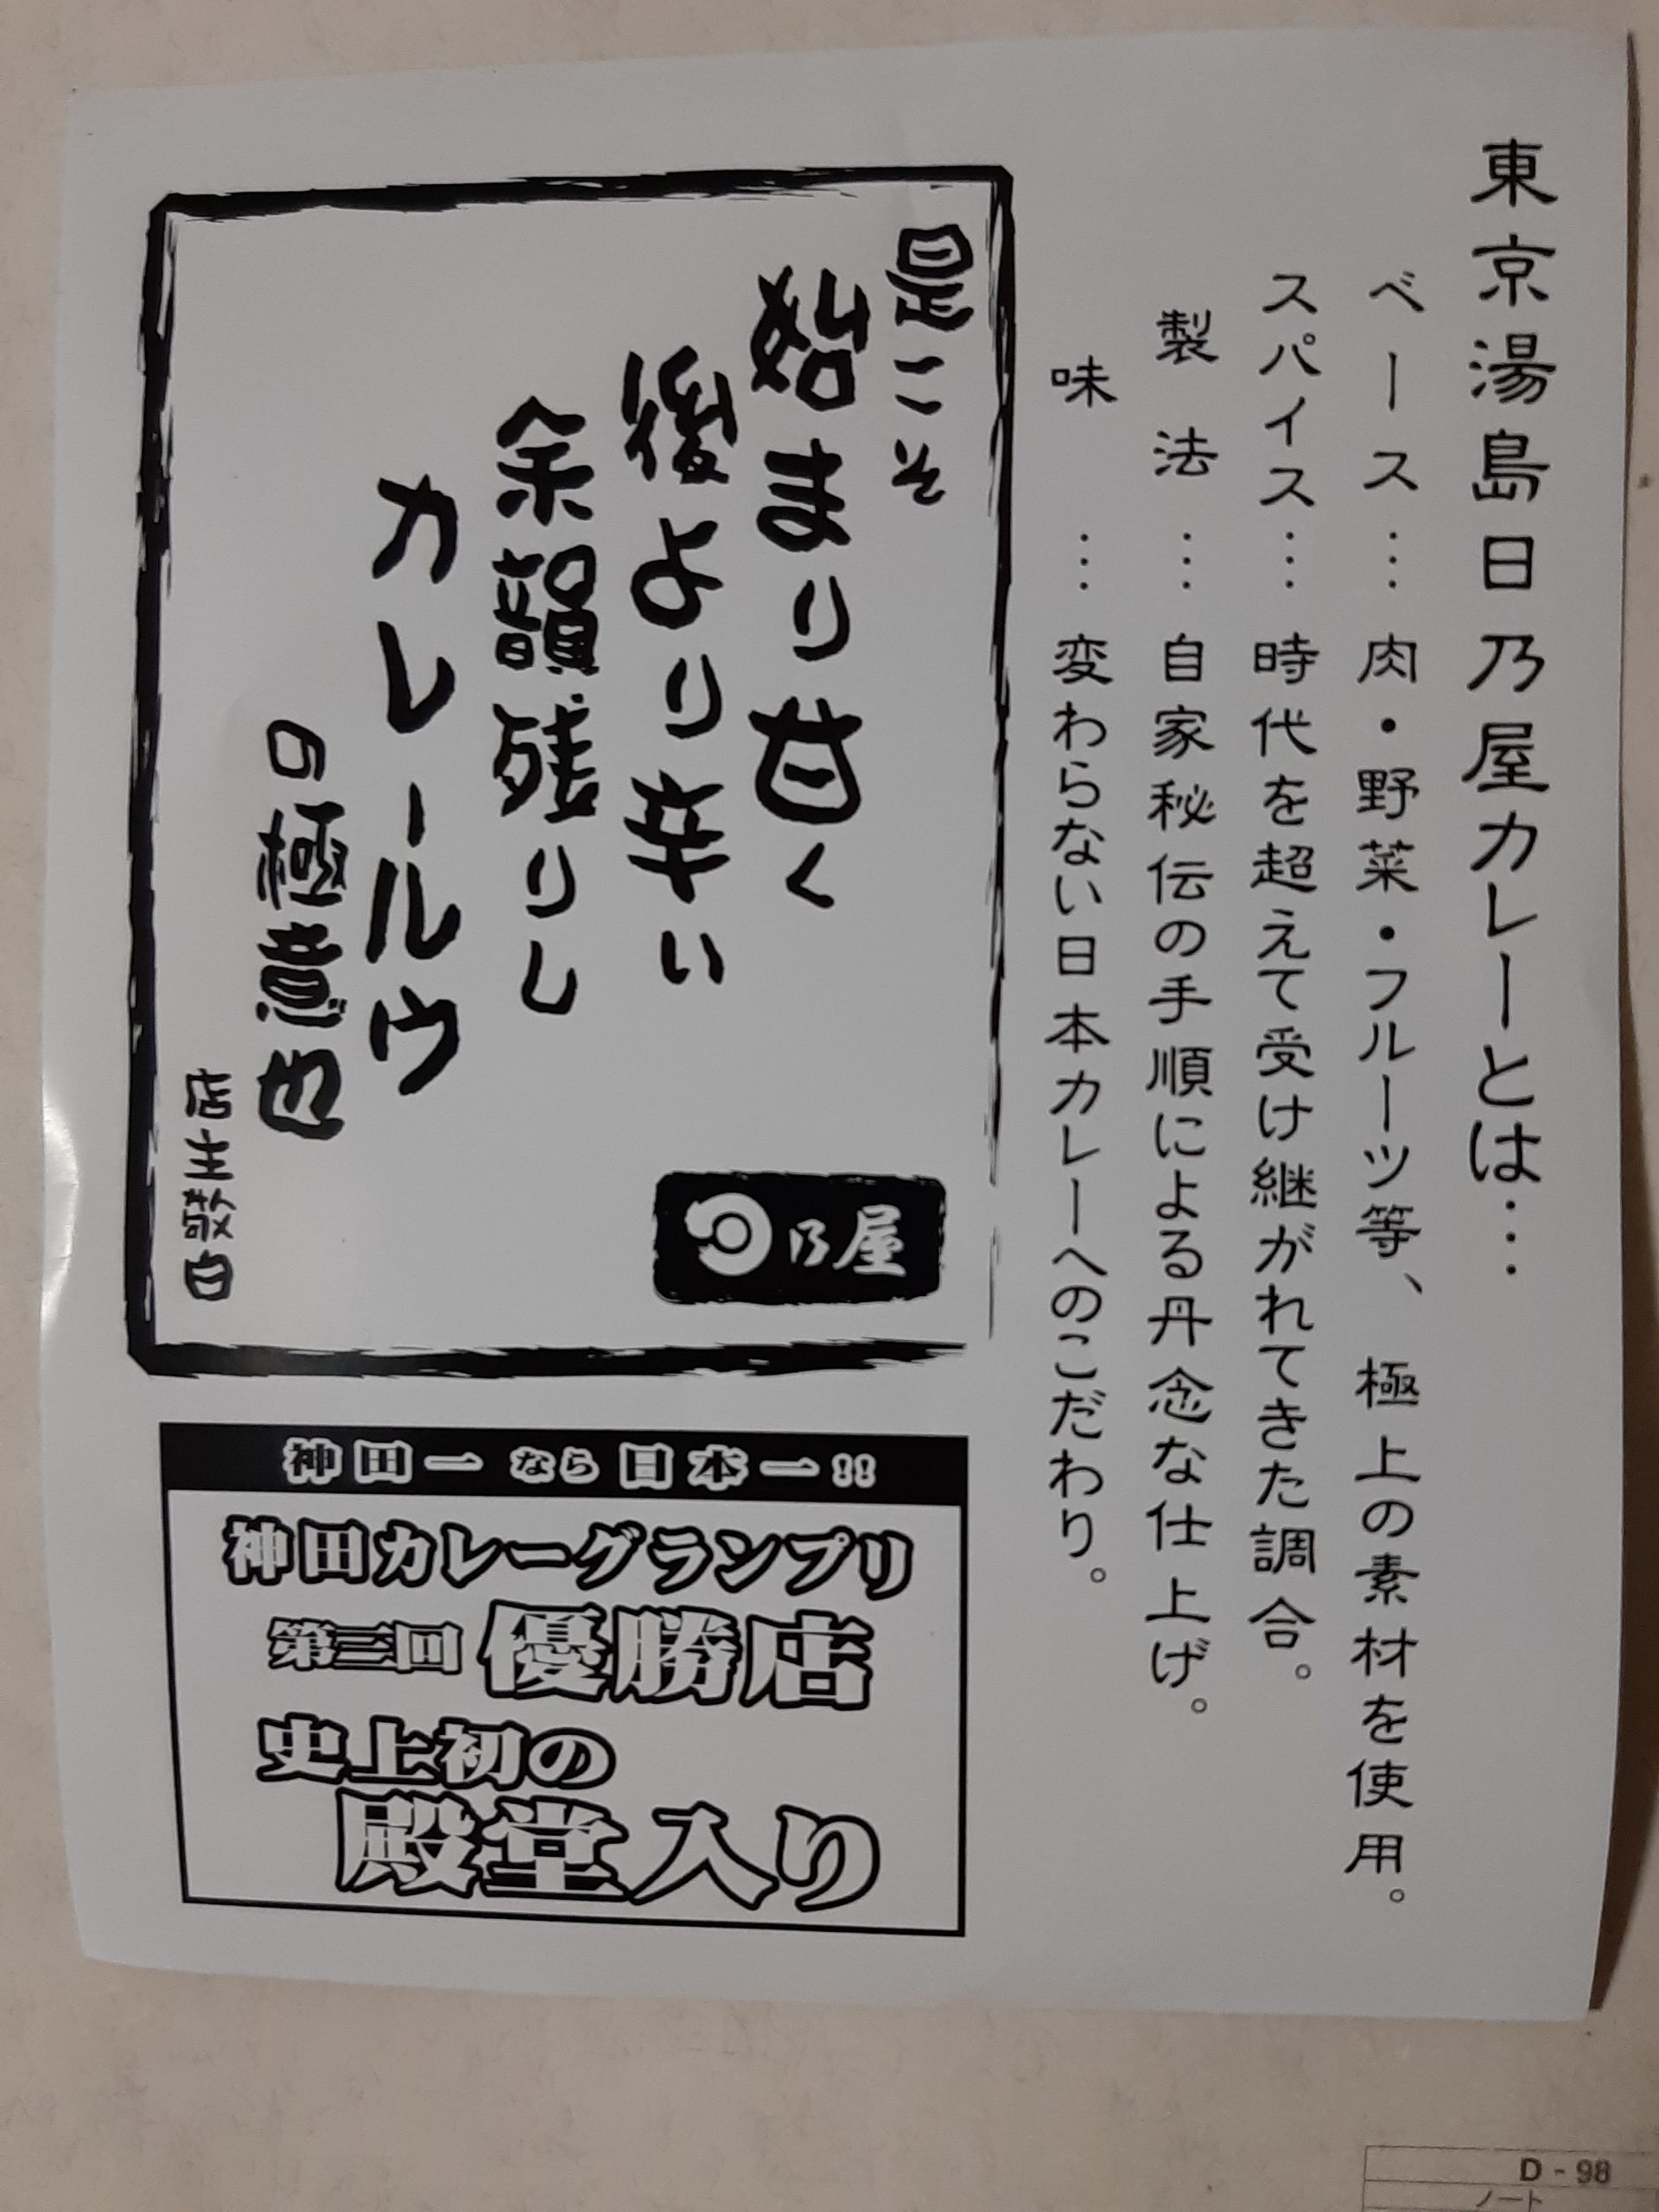 東京湯島日乃屋カレーとは…
ベース…肉・野菜・フルーツ等、極上の素材を使用。
スパイス…時代を超えて受け継がれてきた調合。
製法…自家秘伝の手順による丹念な仕上げ。
味…変わらない日本カレーへのこだわり。
是こそ
始まり甘く
後より辛い
余韻残りし
カレールウ
の極意也
店主敬白
日乃屋
神田一なら日本一!!
神田カレーグランプリ
第三回優勝店
史上初の
殿堂入り
D-98
ノート